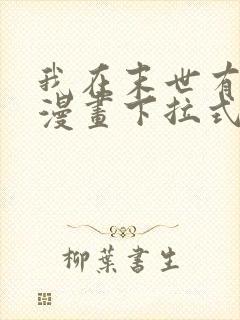 我在末世有
漫畫下拉式
柳葉書生